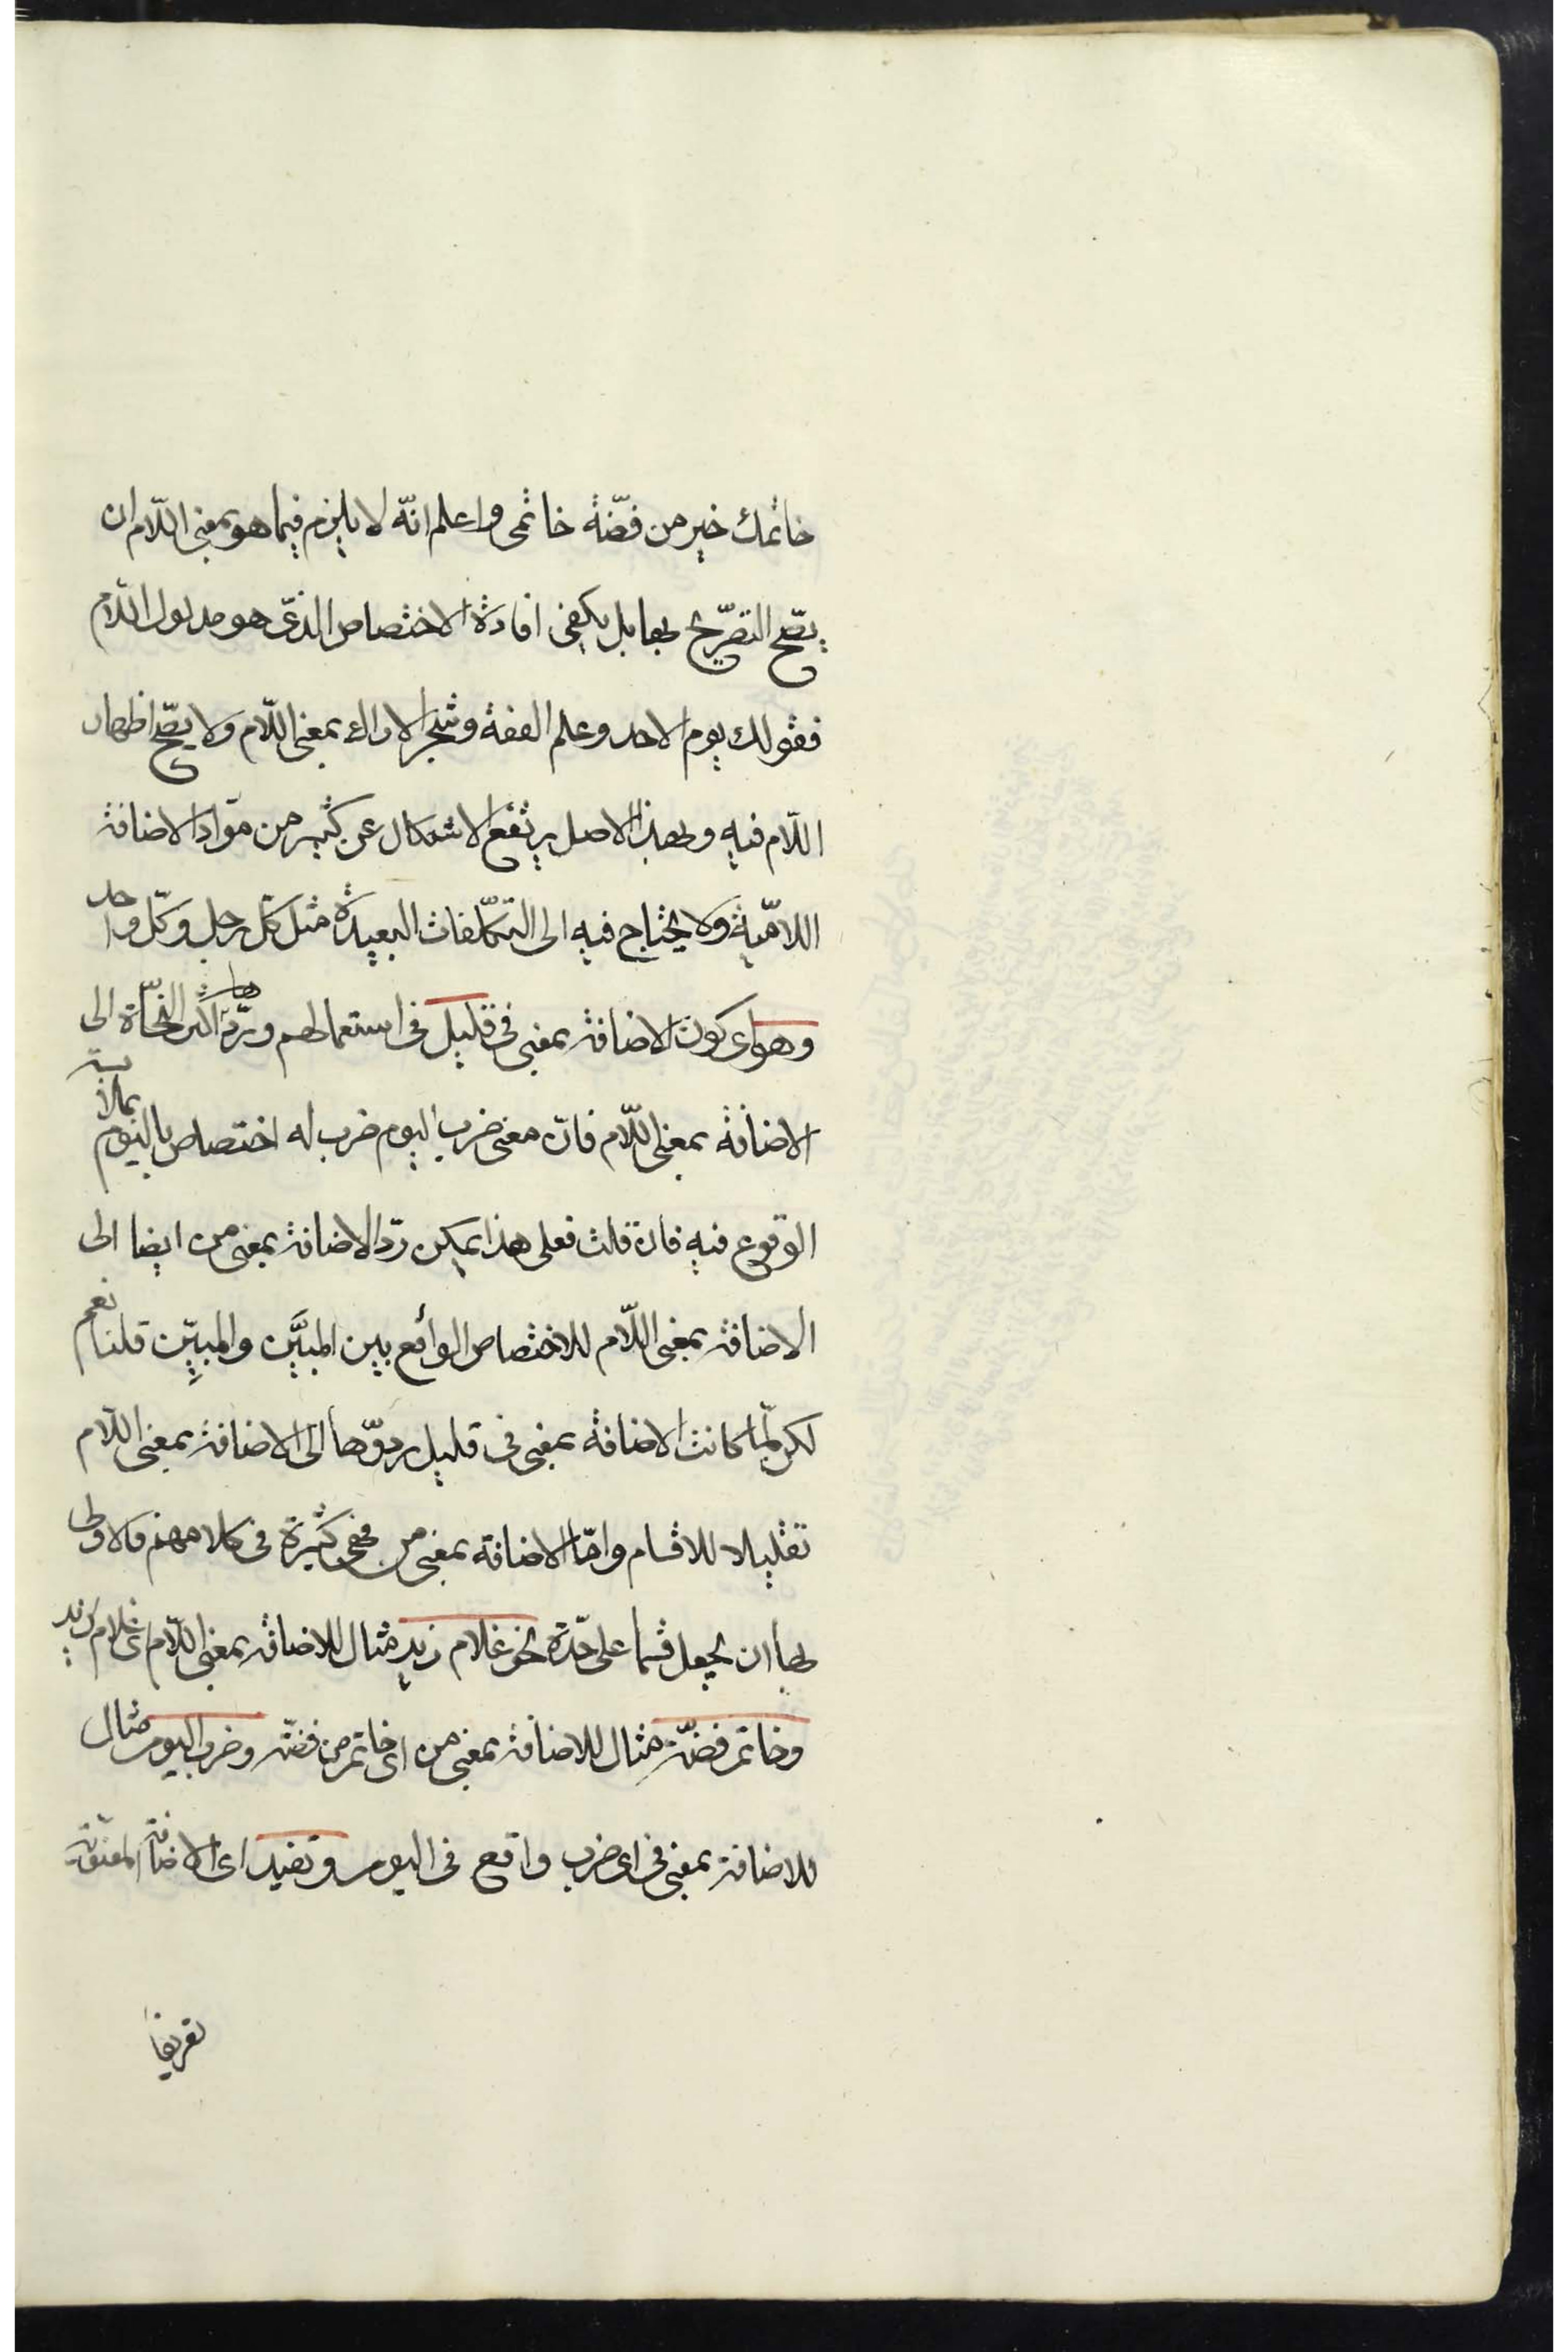 خاتمك خير من فضّة خاتمى واعلم انّه لا يلزم فيما هو بمعنى اللّام ان
يصّح التصرّيح بها بل يكفى افادة الاختصاص الذىّ هو مدلول اللّام
فقولك يوم الاحد وعلم الفقه وشجر الاراك بمعنى اللّام ولا يصّح اظهار
اللّام فيه وبهذا الاصل يرتفع الاشكال عن كثير من موّاد الاضافة
اللاميّة ولا يحتاج فيه الى التكلّفات البعيدة مثل كلّ رجل وكلّ واحد
وهو اى كون الاضافة بمعنى فى قليل فى استعمالهم وردّها اكثر النحّاة الى
الاضافة بمعنى اللّام فانّ معنى ضرب اليوم ضرب له اختصاص باليوم بملابسة
الوقوع فيه فان قلت فعلى هذا يمكن ردّ الاضافة بمعنى من ايضا الى
الاضافة بمعنى اللّام للاختصاص الواقع بين المبيَّن والمبيِّن قلنا نعم
لكن لمّا كانت الاضافة بمعنى فى قليل ردوّها الى الاضافة بمعنى اللّام
تقليلا للاقسام وامّا الاضافة بمعنى من فهى كثيرة فى كلامهم فالاولى
بها ان يجعل قسما على حدّة نحو غلام زيد مثال للاضافة بمعنى اللّام اى غلام لزيد
وخاتم فضّة مثال للاضافة بمعنى من اى خاتم من فضّة وضرب اليوم مثال
للاضافة بمعنى فى اى ضرب واقع فى اليوم وتفيد اى الاضافة المعنويّة
تعريفا